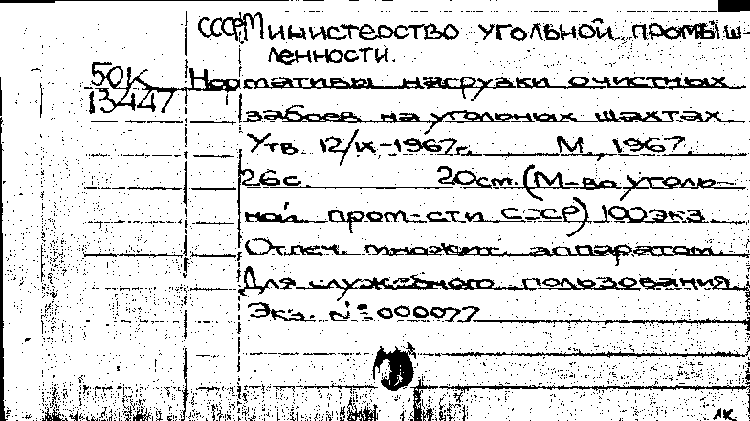 СССР Министерство угольной промыш-
ленности.
50К
13447
Нормативы нагрузки очистных
забоев на угольных шахтах
Утв. 12/IX-1967г. М., 1967.
26с. 20см. (М-во уголь-
ной пром-сти СССР) 100экз.
Отпеч. множит. аппаратом.
Для служебного пользования
Экз. №000077
ЛК